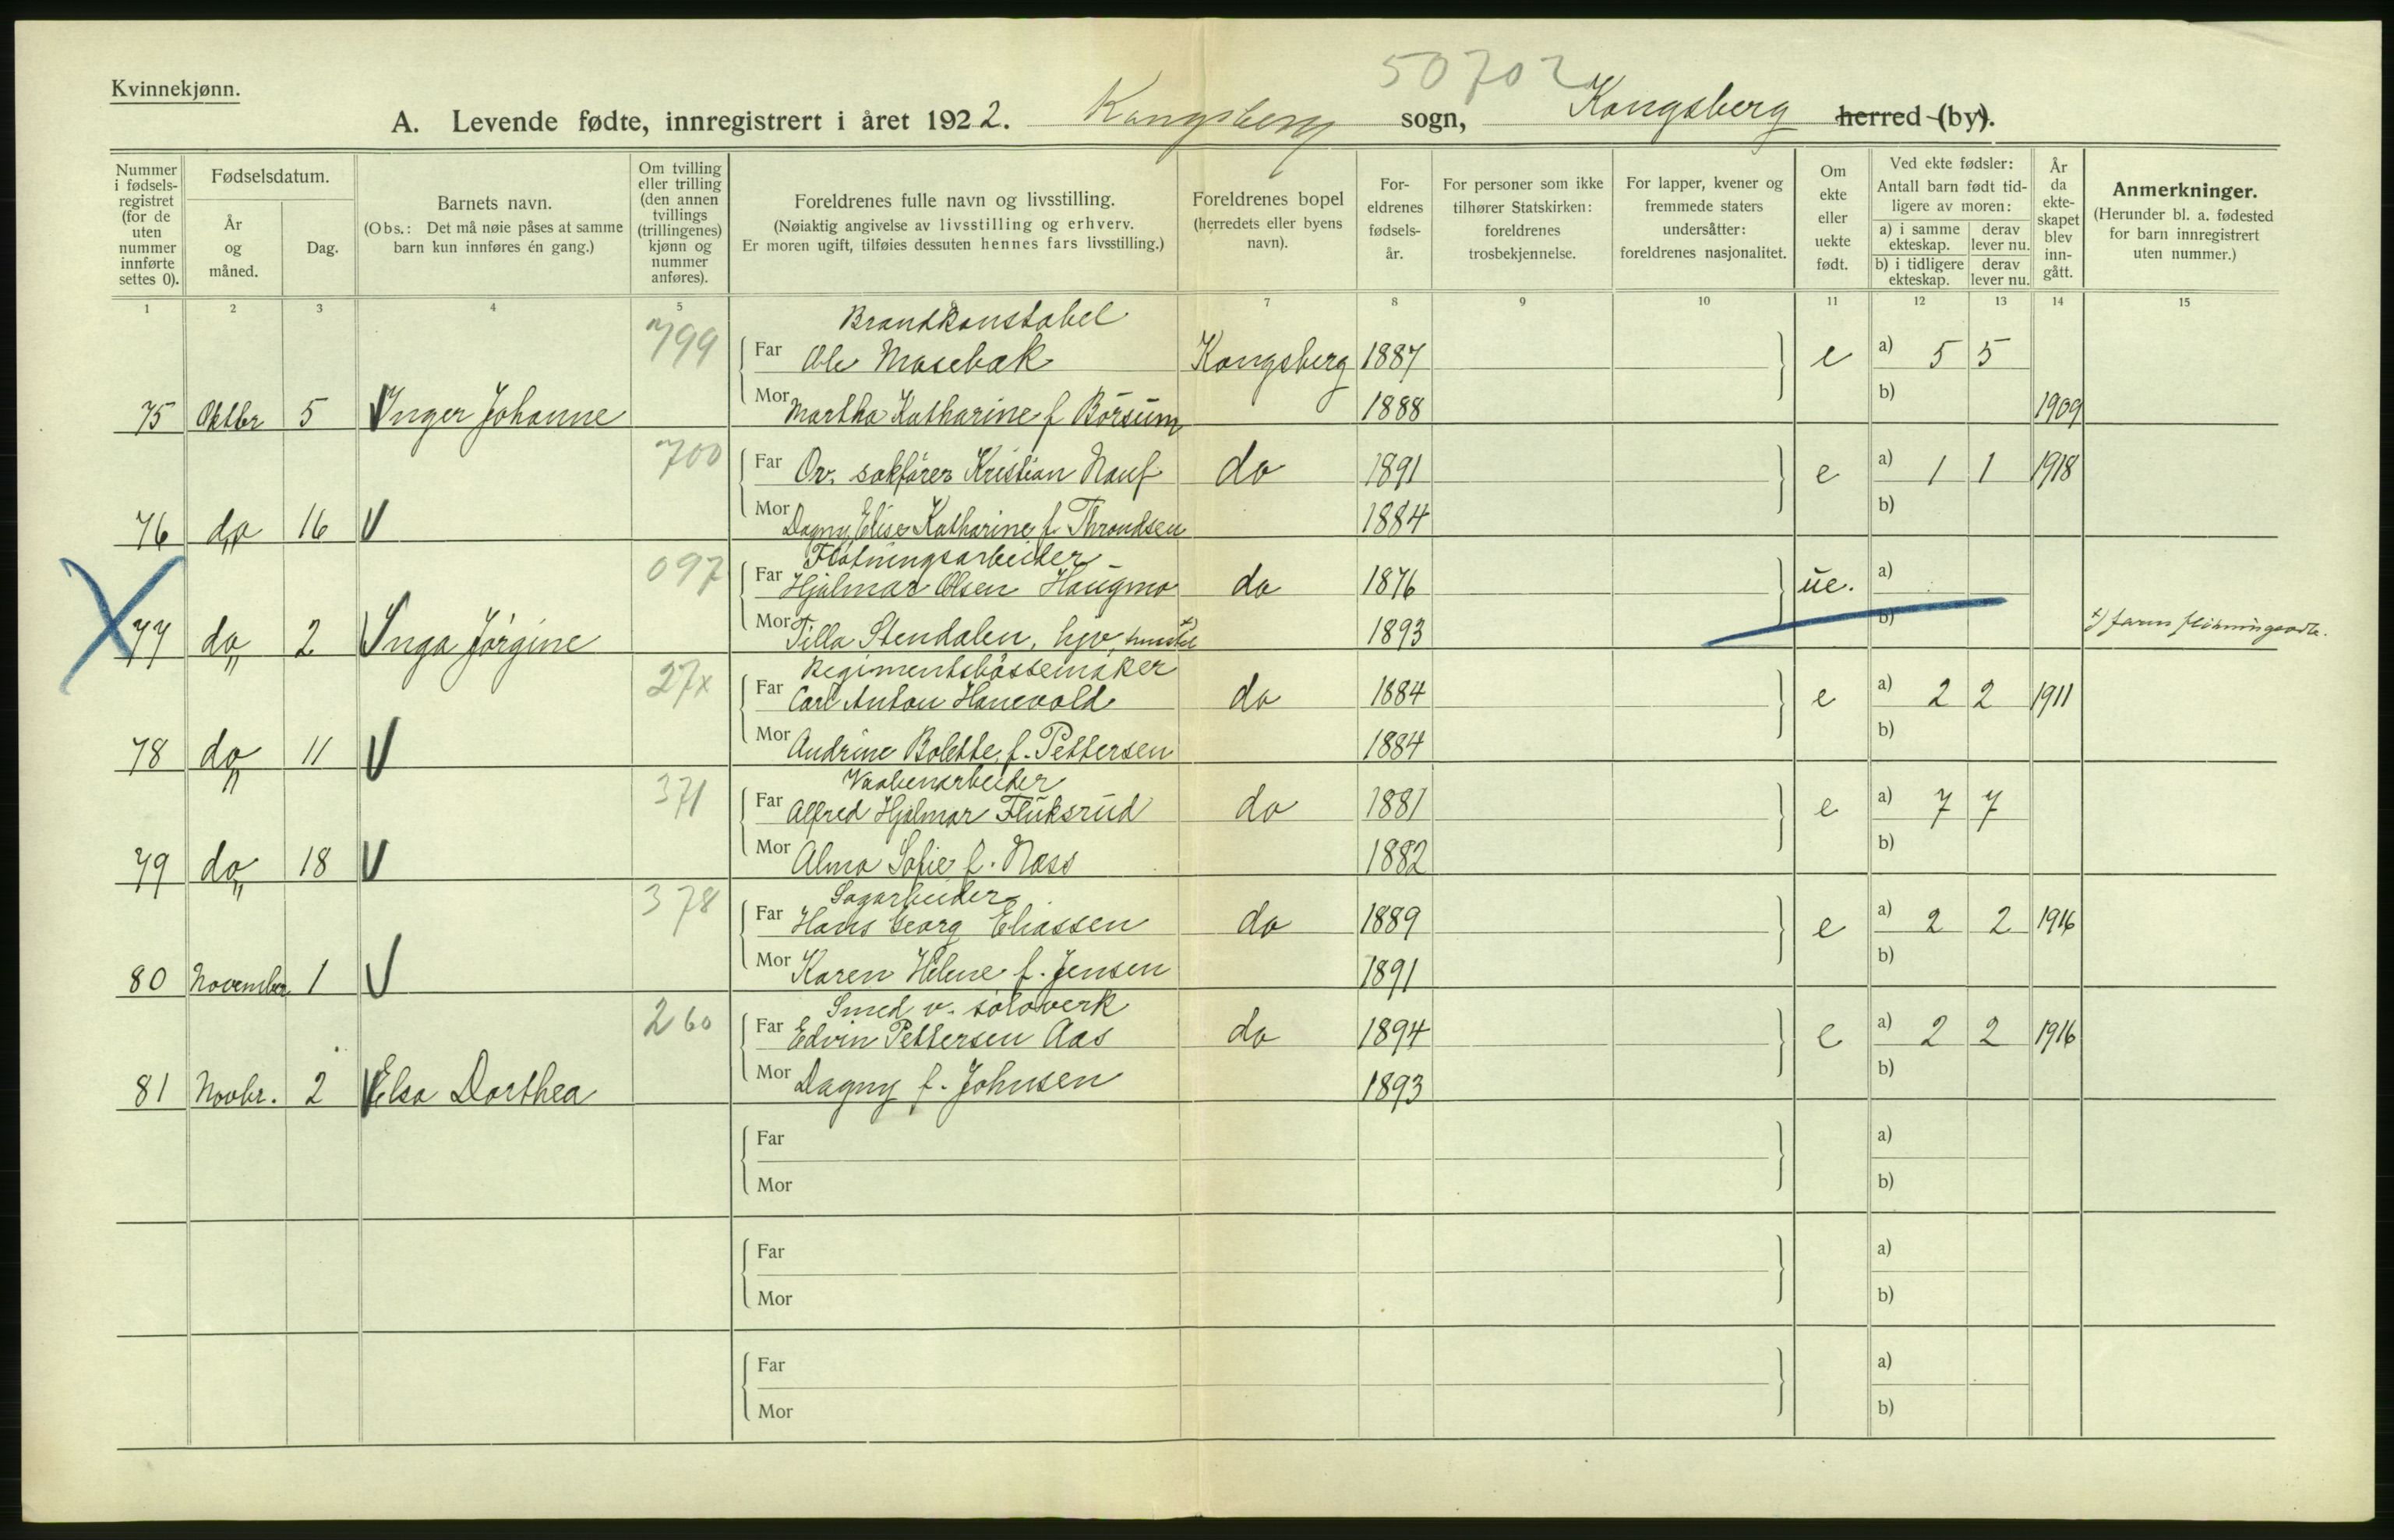 Kvinnekjønn.
50702
A. Levende fødte, innregistrert i året 1922. Kongsberg sogn, Kongsberg herred (by).
Nummer i fødsels-registret (for de uten nummer innførte settes 0).
Fødselsdatum.
År og måned.
Dag.
Barnets navn.
(Obs.: Det må nøie påses at samme barn kun innføres én gang.)
Om tvilling eller trilling (den annen tvillings (trillingenes) kjønn og nummer anføres).
Foreldrenes fulle navn og livsstilling.
(Nøiaktig angivelse av livsstilling og erhverv.
Er moren ugift, tilføies dessuten hennes fars livsstilling.)
Foreldrenes bopel (herredets eller byens navn).
For-eldrenes fødsels-år.
For personer som ikke tilhører Statskirken: foreldrenes trosbekjennelse.
For lapper, kvener og fremmede staters undersåtter: foreldrenes nasjonalitet.
Om ekte eller uekte født.
Ved ekte fødsler:
Antall barn født tid-ligere av moren:
a) i samme ekteskap.
derav lever nu.
b) i tidligere ekteskap.
derav lever nu.
År da ekte-skapet blev inn-gått.
Anmerkninger.
(Herunder bl. a. fødested for barn innregistrert uten nummer.)
1 2 3 4 5 6 7 8 9 10 11 12 13 14 15
799 Brandkonstabel
Far Ole Masebæk Kongsberg 1887 e a) 5 5
75 Oktbr 5 Inger Johanne Mor Martha Katharine f Børsum 1888 b) 1909
700 Far Ov. sakfører Kristian Nauf do 1891 e a) 1 1 1918
76 do 16 V Mor Dagny Elise Katharine f. Throndsen 1884 b)
097 Fløtningsarbeider
Far Hjalmar Olsen Haugmo do 1876 ue. a)
X 77 do 2 Inga Jørgine Mor Tilla Stendalen, hjv. 1893 b) x) faren
27x Regimentsbøssemaker
Far Carl Anton Hanevold do 1884 e a) 2 2 1911
78 do 11 V Mor Andrine Bolette f. Pettersen 1884 b)
371 Vaabenarbeider
Far Alfred Hjalmar Fluksrud do 1881 e a) 7 7
79 do 18 V Mor Alma Sofie f. Næss 1882 b)
378 Sagarbeider
Far Hans Georg Eliassen do 1889 e a) 2 2 1916
80 November 1 V Mor Karen Helene f. Jensen 1891 b)
260 Smed v. sølvverk
Far Edvin Pettersen Aas do 1894 e a) 2 2 1916
81 Novbr. 2 Elsa Dorthea Mor Dagny f. Johnsen 1893 b)
Far a)
Mor b)
Far a)
Mor b)
Far a)
Mor b)